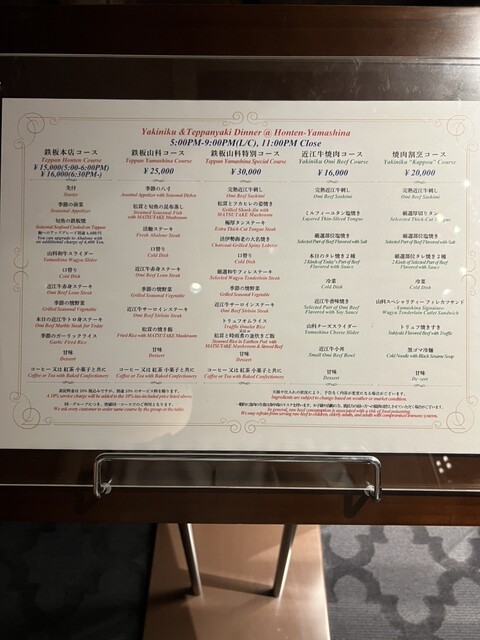 Yakiniku & Teppanyaki Dinner @ Honten-Yamashina
5:00PM-9:00PM(L/C), 11:00PM Close
鉄板本店コース
Teppan Honten Course
¥15,000(5:00-6:00PM)
¥16,000(6:30PM-)
先付
Starter
季節の前菜
Seasonal Appetizer
旬魚の鉄板焼
Seasonal Seafood Cooked on Teppan
山科和牛スライダー
Yamashina Wagyu Slider
口替り
Cold Dish
近江牛赤身ステーキ
Omi Beef Lean Steak
季節の焼野菜
Grilled Seasonal Vegetable
本日の近江牛トロ身ステーキ
Omi Beef Marble Steak for Today
季節のガーリックライス
Garlic Fried Rice
甘味
Dessert
コーヒー 又は 紅茶 小菓子と共に
Coffee or Tea with Baked Confectionery
鉄板山科コース
Teppan Yamashina Course
¥25,000
季節の八寸
Assorted Appetizer with Seasonal Dishes
松茸と旬魚の昆布蒸し
Steamed Seasonal Fish
with MATSUTAKE Mushroom
活鮑ステーキ
Fresh Abalone Steak
口替り
Cold Dish
近江牛赤身ステーキ
Omi Beef Lean Steak
季節の焼野菜
Grilled Seasonal Vegetable
近江牛サーロインステーキ
Omi Beef Sirloin Steak
松茸の焼き飯
Fried Rice with MATSUTAKE Mushroom
甘味
Dessert
コーヒー 又は 紅茶 小菓子と共に
Coffee or Tea with Baked Confectionery
鉄板山科特別コース
Teppan Yamashina Special Course
¥30,000
完熟近江牛刺し
Omi Beef Sashimi
松茸とフカヒレの姿焼き
Grilled Shark fin with
MATSUTAKE Mushroom
極厚タンステーキ
Extra Thick Cut Tongue Steak
活伊勢海老の大名焼き
Charcoal-Grilled Spiny Lobster
口替り
Cold Dish
厳選和牛フィレステーキ
Selected Wagyu Tenderloin Steak
季節の焼野菜
Grilled Seasonal Vegetable
近江牛サーロインステーキ
Omi Beef Sirloin Steak
トリュフオムライス
Truffle Omelet Rice
又は
松茸と時雨煮の釜炊きご飯
Steamed Rice in Earthen Pot with
MATSUTAKE Mushroom & Stewed Beef
甘味
Dessert
コーヒー 又は 紅茶 小菓子と共に
Coffee or Tea with Baked Confectionery
近江牛焼肉コース
Yakiniku Omi Beef Course
¥16,000
完熟近江牛刺し
Omi Beef Sashimi
ミルフィーユタン塩焼き
Layered Thin-Sliced Tongue
厳選部位塩焼き
Selected Part of Beef Flavored with Salt
本日のタレ焼き2種
2 Kinds of Today's Part of Beef
Flavored with Sauce
冷菜
Cold Dish
近江牛醤焼き
Selected Part of Omi Beef
Flavored with Soy Sauce
山科チーズスライダー
Yamashina Cheese Slider
近江牛小丼
Small Omi Beef Bowl
甘味
Dessert
焼肉割烹コース
Yakiniku "Kappou" Course
¥20,000
完熟近江牛刺し
Omi Beef Sashimi
厳選厚切りタン
Selected Thick-Cut Tongue
厳選部位塩焼き
Selected Part of Beef Flavored with Salt
厳選部位タレ焼き2種
2 Kinds of Selected Part of Beef
Flavored with Sauce
冷菜
Cold Dish
山科スペシャリティーフィレカツサンド
-Yamashina Signature-
Wagyu Tenderloin Cutlet Sandwich
トリュフ焼きすき
Sukiyaki Flavored Beef with Truffle
黒ゴマ冷麺
Cold Noodle with Black Sesame Soup
甘味
Dessert
A 10% service charge will be added to the 10% tax-included price listed above.
We ask every customer to order same course by the group or the table.
Ingredients are subject to change based on weather or market condition.
In general, raw beef consumption is associated with a risk of food poisoning.
We may refrain from serving raw beef to children, elderly adults, and adults with compromised immune system.